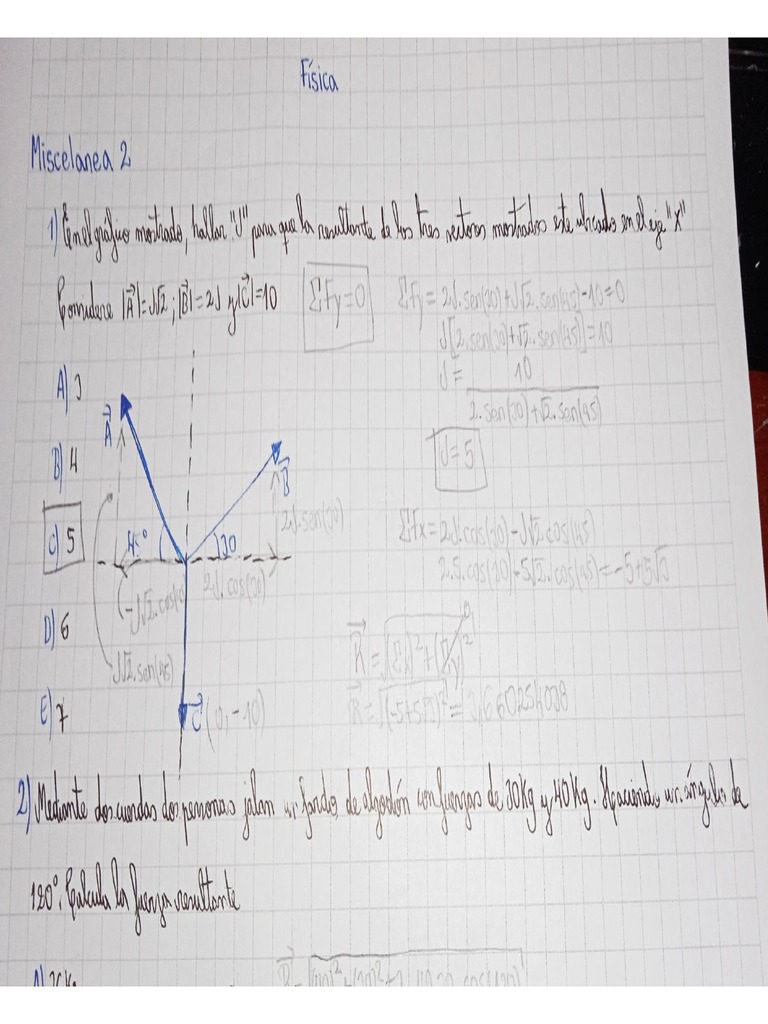 Física
Miscelanea 2
1) En el gráfico mostrado, hallar "J" para que la resultante de los tres vectores mostrados este ubicado en el eje "X"
Considere |A⃗|=J√2 ; |B⃗|=2J y |C⃗|=10
ΣFy=0
ΣFy= 2J.sen(30)+J√2.sen(45)-10=0
J[2.sen(30)+√2.sen(45)]=10
J= 10
2.sen(30)+√2.sen(45)
J=5
A) 3
B) 4
C) 5
D) 6
E) 7
A⃗
B⃗
45°
30
2J.sen(30)
2J.cos(30)
-J√2.cos(45)
J√2.sen(45)
C⃗ (0,-10)
ΣFx=2J.cos(30)-J√2.cos(45)
2.5.cos(30)-5√2.cos(45)=-5+5√3
R⃗=√(Σx)²+(Σy)² 0
R⃗=√(-5+5√3)² = 3,660254038
2) Mediante dos cuerdas dos personas jalan un fardo de algodón con fuerzas de 30Kg y 40Kg. Haciendo un ángulo de
120°. Calcula la fuerza resultante